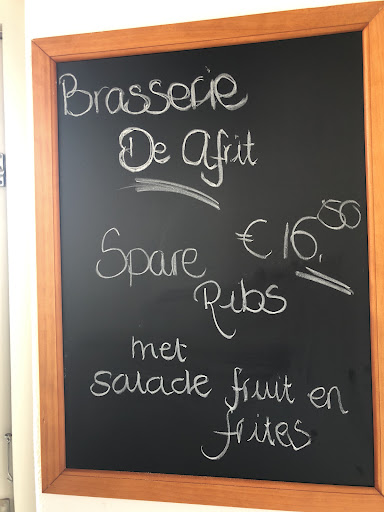 Brasserie
De Afrit
€ 16.50
Spare
Ribs
met
salade fruit en
frites